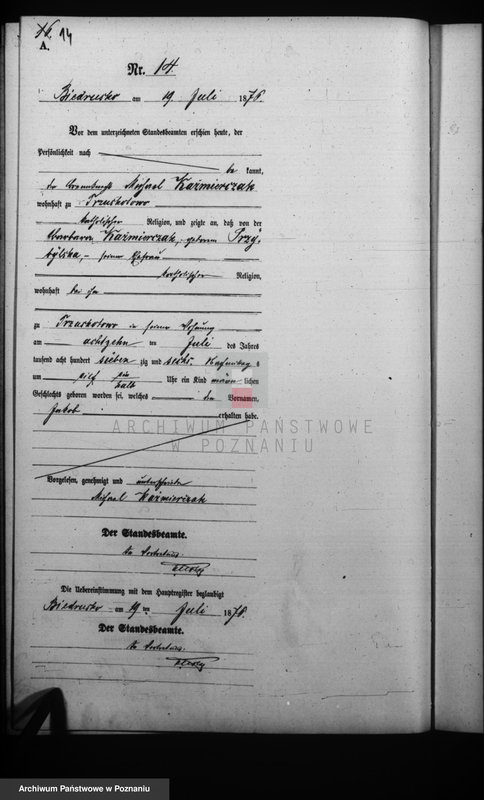 14
A.
Nr. 14
Biedrusko am 19 Juli 1876.
Vor dem unterzeichneten Standesbeamten erschien heute, der
Persönlichkeit nach
be kannt,
der Michael Kaźmierczak
wohnhaft zu Trzuskotowo
katholischer Religion, und zeigte an, daß von der
Barbara Kaźmierczak, geborene Przy-
bylska, seiner Ehefrau
katholischer Religion,
wohnhaft bei ihm
zu Trzuskotowo in seiner Wohnung
am achtzehn ten Juli des Jahres
tausend acht hundert sieben zig und sechs Nachmittag s
um ein halb Uhr ein Kind männ lichen
Geschlechts geboren worden sei, welches den Vornamen,
Jakob erhalten habe.
Vorgelesen, genehmigt und unterschrieben
Michael Kaźmierczak
Der Standesbeamte.
In Vertretung.
Die Uebereinstimmung mit dem Hauptregister beglaubigt
Biedrusko am 19 ten Juli 1876.
Der Standesbeamte.
In Vertretung.
ARCHIWUM PAŃSTWOWE
W POZNANIU
Archiwum Państwowe w Poznaniu